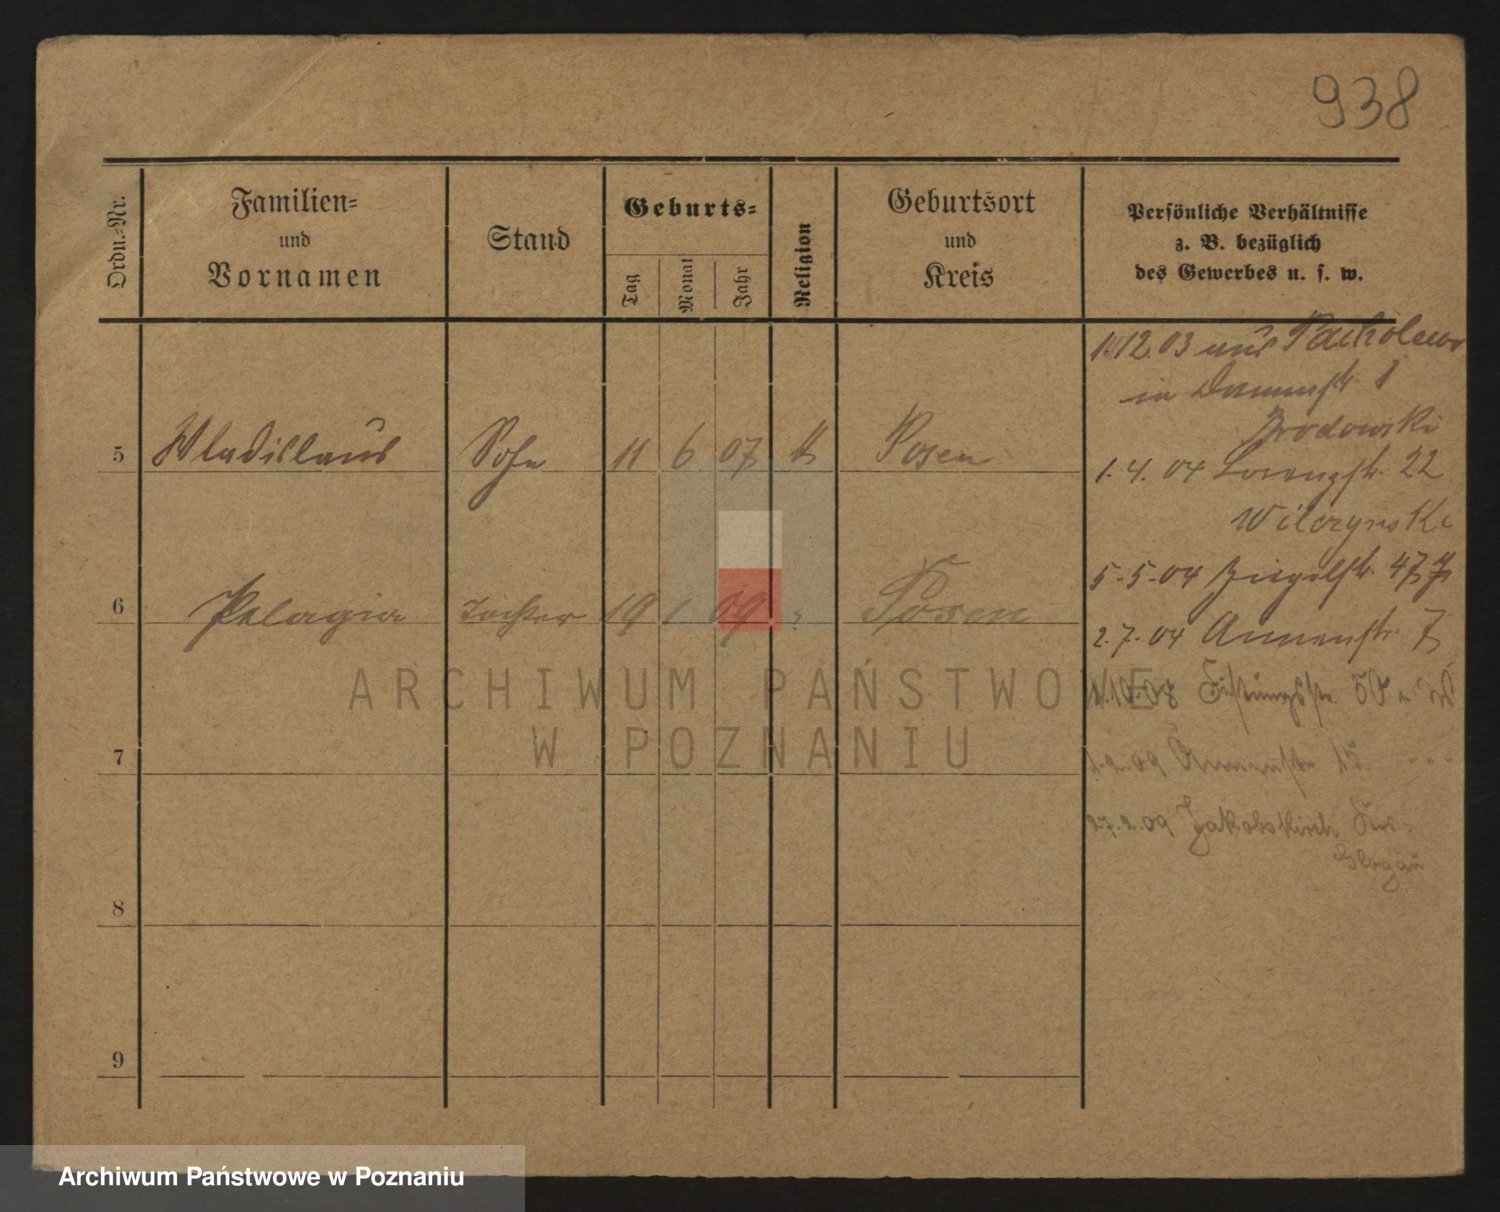 938
Ordn.-Nr.
Familien-
und
Vornamen
Stand
Geburts-
Tag
Monat
Jahr
Religion
Geburtsort
und
Kreis
Persönliche Verhältnisse
z. B. bezüglich
des Gewerbes u. s. w.
1.12.03 aus Pacholewo
in Dammstr. 1
Brodowski
5 Wladislaus Sohn 11 6 07 k Posen
1.4.04 Lorenzstr. 22
Wilczynski
5.5.04 Ziegelstr. 47
6 Pelagia Tochter 19 1 09 Posen
2.7.04 Annenstr. 7
ARCHIWUM PAŃSTWOWE
W POZNANIU
7
1.2.09 Annenstr 15
27.2.09 Jakobskirch Krs.
Glogau
8
9
Archiwum Państwowe w Poznaniu